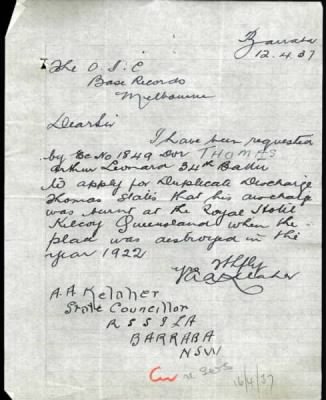 Barraba
12.4.37
The O.I.C
Base Records
Melbourne
Dear Sir
I have been requested
by Ex No 1849 Dvr THOMAS
Arthur Leonard 34th Battn
to apply for Duplicate Discharge
Thomas States that his discharge
was burnt at the Royal Hotel
Kilcoy Queensland when the
place was destroyed in the
year 1922
Yrs
A.A. Kelaher
State Councillor
R S S I L A
BARRABA
NSW
16/4/37